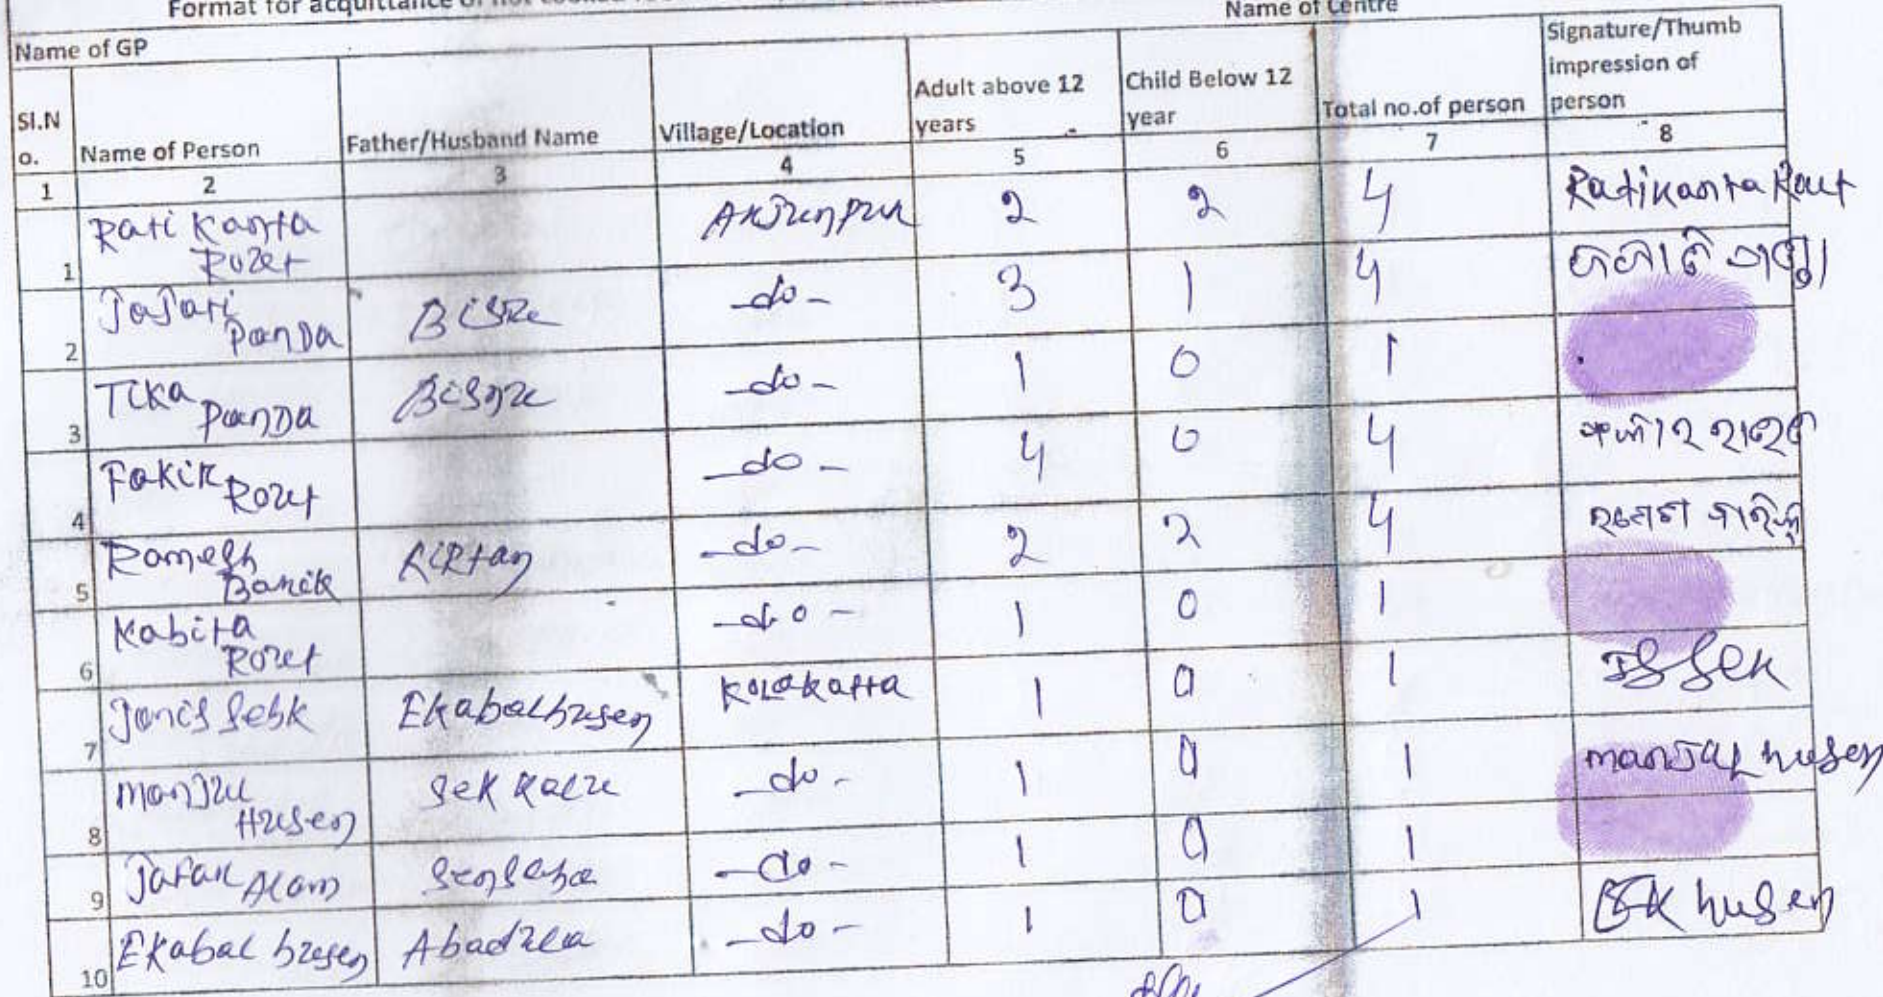 Format for acquittance of hot cooked
Name of Centre
Name of GP
Sl.No. Name of Person Father/Husband Name Village/Location Adult above 12 years Child Below 12 year Total no.of person Signature/Thumb impression of person
1 2 3 4 5 6 7 8
1 Rati Kanta Rout Arjunpur 2 2 4 Ratikanta Rout
2 Jajati Panda -do- 3 1 4
3 Tika Panda -do- 1 0 1
4 Fakir Rout -do- 4 0 4
5 Ramesh Barik Kirtan -do- 2 2 4 ରମେଶ ବାରିକ
6 Kabita Rout -do- 1 0 1
7 Ekabal husen Kolakatta 1 0 1 Sek
8 Manju Husen Sek Kalu -do- 1 0 1 husen
9 Jafar Alam -do- 1 0 1
10 Ekabal husen -do- 1 0 1 EK husen